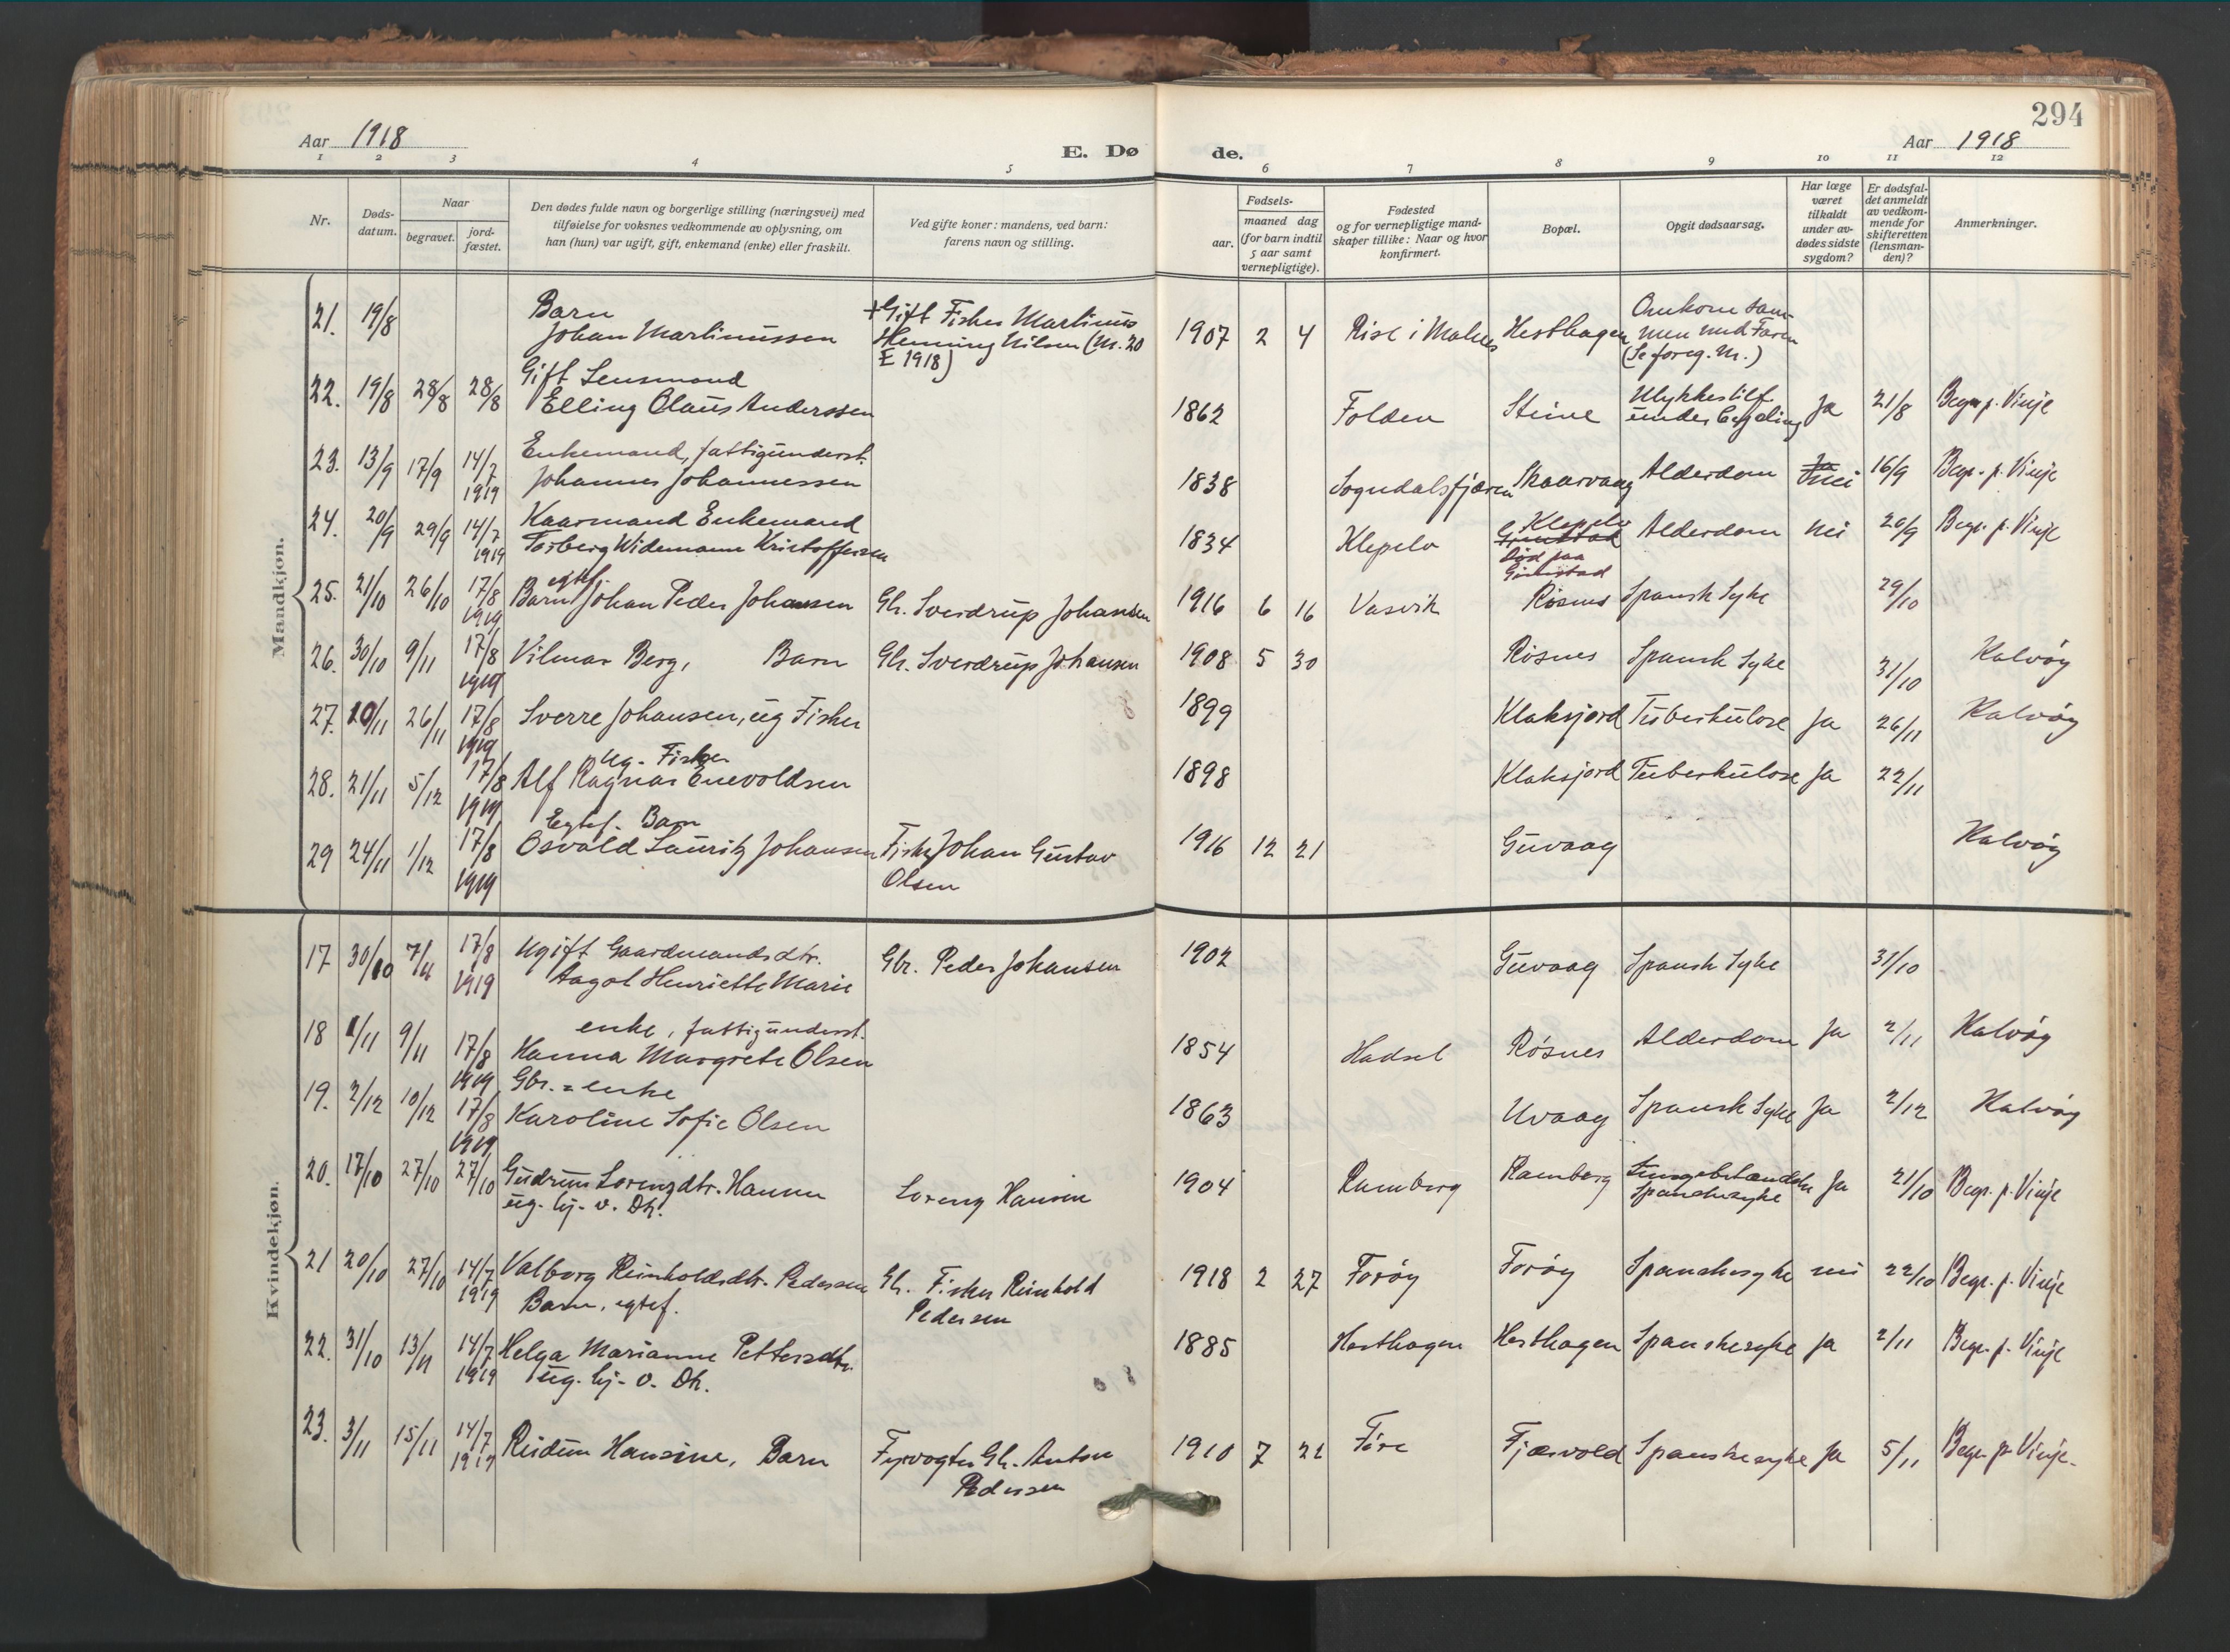 294
Aar 1918
E. Dø
de.
Aar 1918
1 2 3 4 5 6 7 8 9 10 11 12
Nr.
Døds-
datum.
Naar
begravet.
jord-
fæstet.
Den dødes fulde navn og borgerlige stilling (næringsvei) med
tilføielse for voksnes vedkommende av oplysning, om
han (hun) var ugift, gift, enkemand (enke) eller fraskilt.
Ved gifte koner: mandens, ved barn:
farens navn og stilling.
Fødsels-
aar.
maaned dag
(for barn indtil
5 aar samt
vernepligtige).
Fødested
og for vernepligtige mand-
skaper tillike: Naar og hvor
konfirmert.
Bopæl.
Opgit dødsaarsag.
Har læge
været
tilkaldt
under av-
dødes sidste
sygdom?
Er dødsfal-
det anmeldt
av vedkom-
mende for
skifteretten
(lensman-
den)?
Anmerkninger.
Mandkjøn.
21. 19/8 Barn
Johan Martinussen
+Gift Fisker Martinus
Henning Nilsen (Nr. 20
E 1918)
1907 2 4 Rise i Malnes Hesthagen
Omkom sam-
men med Faren
(Se foreg. Nr.)
22. 19/8 28/8 28/8 Gift Lensmand
Elling Olaus Anderssen
1862 Folden Steine
Ulykkestilf.
under
Ja 21/8 Begr. p. Vinje
23. 13/9 17/9 14/7 1919 Enkemand, fattigunderst.
Johannes Johannessen
1838 Sogndalsfjæren Skaarvaag Alderdom Ja nei 16/9 Begr. p. Vinje
24. 20/9 29/9 14/7 1919 Kaarmand Enkemand
Torberg Widemann Kristoffersen
1834 Klepelv Klepelv
Grimstad
Død paa
Grimstad
Alderdom nei 20/9 Begr. p. Vinje
25. 21/10 26/10 17/8 1919 Barn egtef. Johan Peder Johansen Gb. Sverdrup Johansen 1916 6 16 Vasvik Røsnes Spansk Syke 29/10
26. 30/10 9/11 17/8 1919 Vilmar Berg, Barn Gb. Sverdrup Johansen 1908 5 30 Røsnes Spansk Syke 31/10 Kalvøy
27. 20/11 26/11 17/8 1919 Sverre Johansen, ug Fisker 1899 Klaksjord Tuberkulose Ja 26/11 Kalvøy
28. 21/11 5/12 17/8 1919 ug. Fisker
Alf Ragnar Enevoldsen 1898 Klaksjord Tuberkulose Ja 22/11
29 24/11 1/12 17/8 1919 Egtef. Barn
Osvald Lauritz Johansen Fisker Johan Gustav
Olsen
1916 12 21 Guvaag Kalvøy
Kvindekjøn.
17 30/10 7/11 17/8 1919 Ugift Gaardmandsdtr.
Aagot Henriette Marie
Gbr. Peder Johansen 1902 Guvaag Spansk Syke 31/10
18 1/11 9/11 17/8 1919 enke, fattigunderst.
Hanna Margrete Olsen
1854 Hadsel Røsnes Alderdom Ja 2/11 Kalvøy
19. 2/12 10/12 17/8 1919 Gbr.=enke
Karoline Sofie Olsen
1863 Uvaag Spansk Syke Ja 2/12 Kalvøy
20. 17/10 27/10 27/10 Gudrun Lorenzdtr. Hansen
ug. hj. v. Dt.
Lorenz Hansen 1904 Ramberg Ramberg
Lungebetændelse
Spanskesyke
Ja 21/10 Begr. p. Vinje
21 20/10 27/10 14/7 1919 Valborg Reinholdsdtr. Pedersen
Barn, egtef.
Gb. Fisker Reinhold
Pedersen
1918 2 27 Forøy Forøy Spanskesyke nei 22/10 Begr. p. Vinje
22. 31/10 13/11 14/7 1919 Helga Marianne Pettersdtr.
ug. hj. v. Dt.
1885 Hesthagen Hesthagen Spanskesyke Ja 2/11 Begr. p. Vinje
23. 3/11 15/11 14/7 1919 Reidun Hansine, Barn
Fyrvogter Gb. Anton
Pedersen
1910 7 21 Føre Fjærvold Spanskesyke Ja 5/11 Begr. p. Vinje.